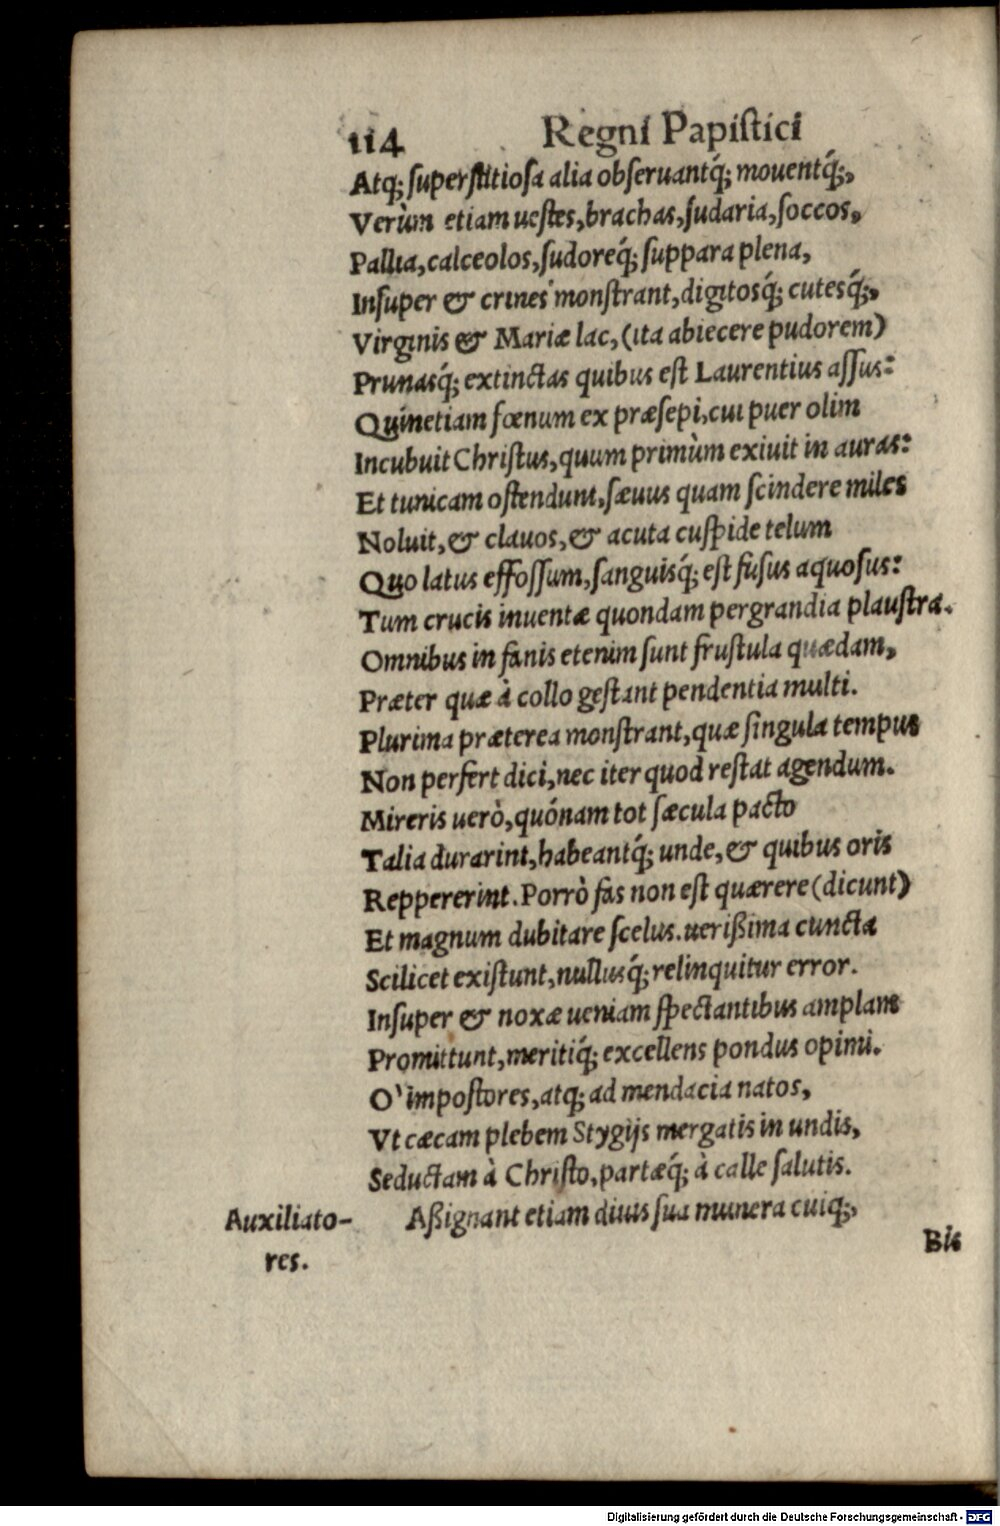 114 Regni Papiſtici
Atq; ſuperſtitioſa alia obſeruantq́; mouentq́;,
Verùm etiam ueſtes, brachas, ſudaria, ſoccos,
Pallia, calceolos, ſudoreq́; ſuppara plena,
Inſuper & crines monſtrant, digitosq́; cutesq́;,
Virginis & Mariæ lac, (ita abiecere pudorem)
Prunasq́; extinctas quibus eſt Laurentius aſſus:
Quinetiam fœnum ex præſepi, cui puer olim
Incubuit Chriſtus, quum primùm exiuit in auras:
Et tunicam oſtendunt, ſæuus quam ſcindere miles
Noluit, & clauos, & acuta cuſpide telum
Quo latus effoſſum, ſanguisq́; eſt fuſus aquoſus:
Tum crucis inuentæ quondam pergrandia plauſtra.
Omnibus in fanis etenim ſunt fruſtula quædam,
Præter quæ à collo geſtant pendentia multi.
Plurima præterea monſtrant, quæ ſingula tempus
Non perfert dici, nec iter quod reſtat agendum.
Mireris uerò, quónam tot ſæcula pacto
Talia durarint, habeantq́; unde, & quibus oris
Reppererint. Porrò fas non eſt quærere (dicunt)
Et magnum dubitare ſcelus. uerißima cuncta
Scilicet exiſtunt, nullusq́; relinquitur error.
Inſuper & noxæ ueniam ſpectantibus amplam
Promittunt, meritiq́; excellens pondus opimi.
O' impoſtores, atq; ad mendacia natos,
Vt cæcam plebem Stygijs mergatis in undis,
Seductam à Chriſto, partæq́; à calle ſalutis.
Auxiliato- Aßignant etiam diuis ſua munera cuiq;,
res.
Bis
Digitalisierung gefördert durch die Deutsche Forschungsgemeinschaft - DFG